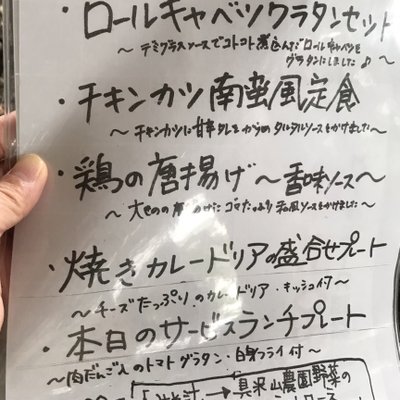 ・ロールキャベツグラタンセット
〜デミグラスソースでコトコト煮込んだロールキャベツを
グラタンにしました♪〜
・チキンカツ南蛮風定食
〜チキンカツに甘辛タレをからめタルタルソースをかけました〜
・鶏の唐揚げ〜香味ソース〜
〜大きめの唐揚げにゴマたっぷり和風ソースをかけました〜
・焼きカレードリアの盛合せプレート
〜チーズたっぷりのカレードリア・キッシュ付〜
・本日のサービスランチプレート
〜肉だんご入のトマトグラタン・白身フライ付〜
具米山農園野菜の